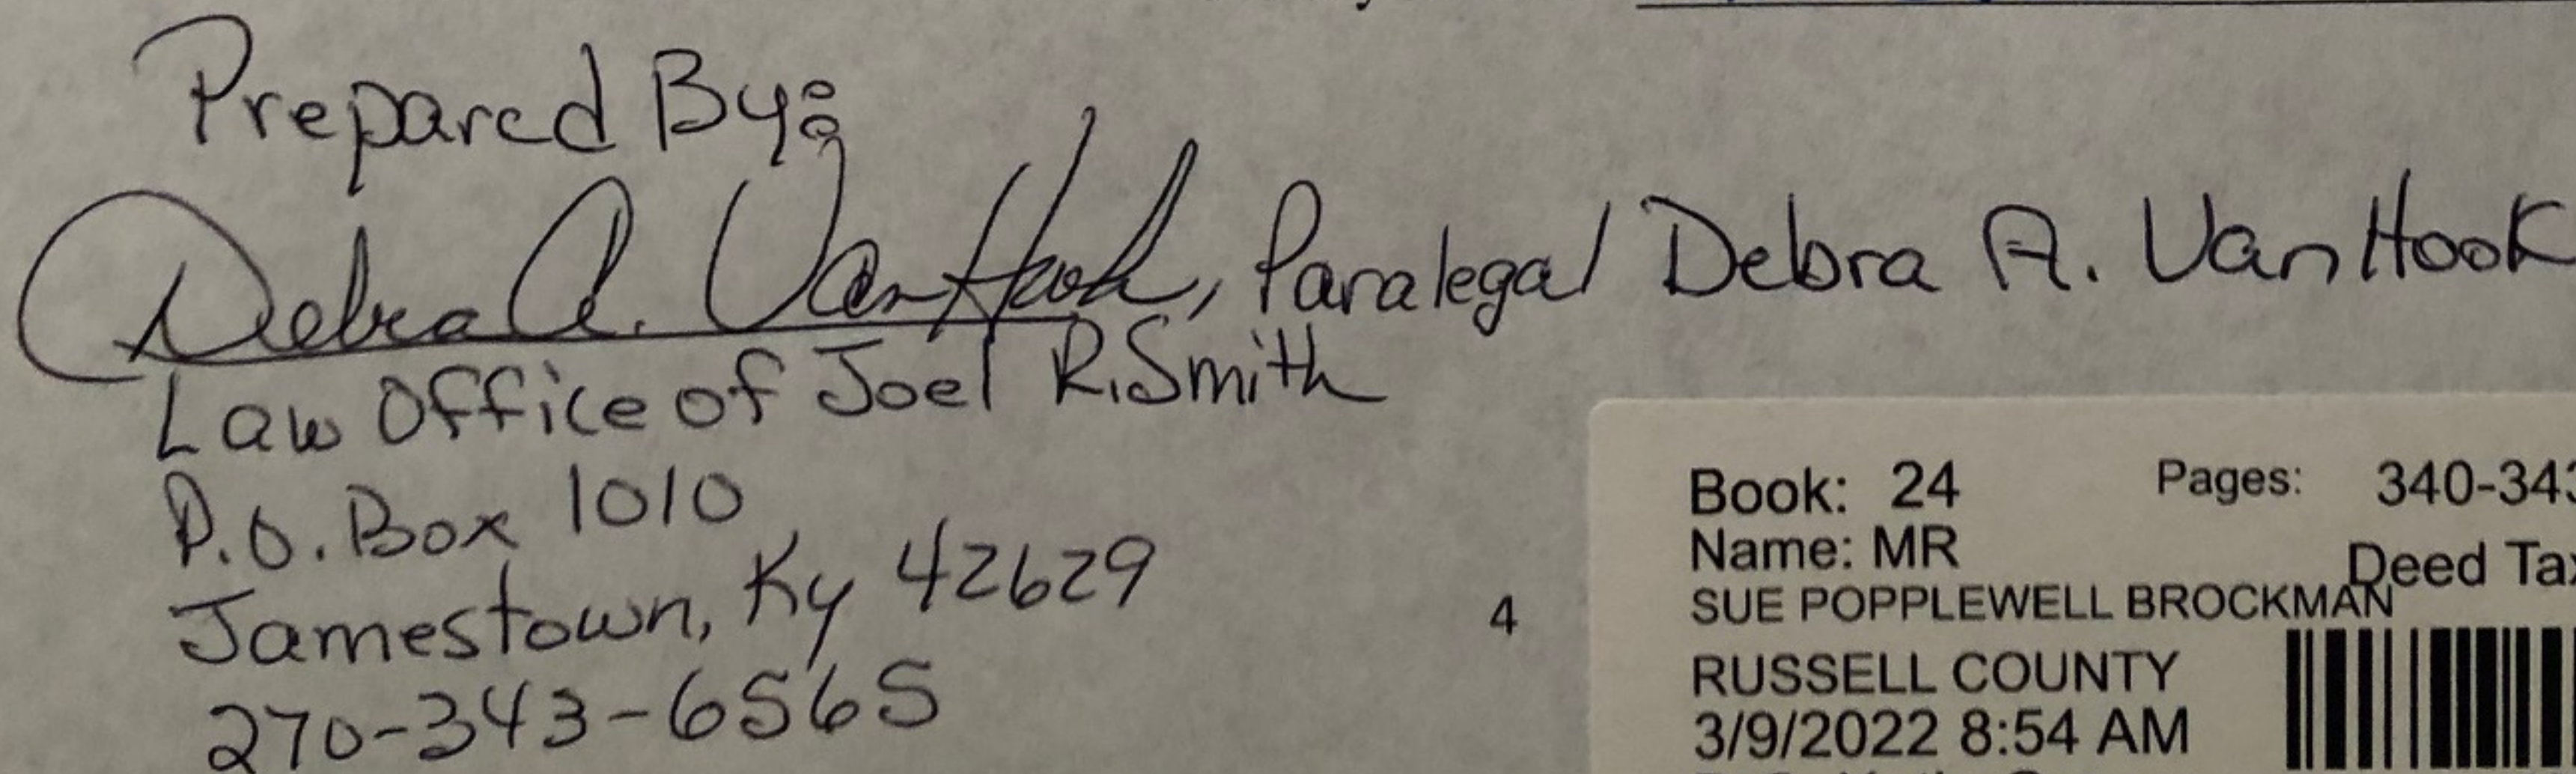 Prepared By:
Debra A. VanHook, Paralegal Debra A. VanHook
Law Office of Joel R. Smith
P.O. Box 1010
Jamestown, Ky 42629
270-343-6565
4
Book: 24 Pages: 340-343
Name: MR Deed Tax
SUE POPPLEWELL BROCKMAN
RUSSELL COUNTY
3/9/2022 8:54 AM